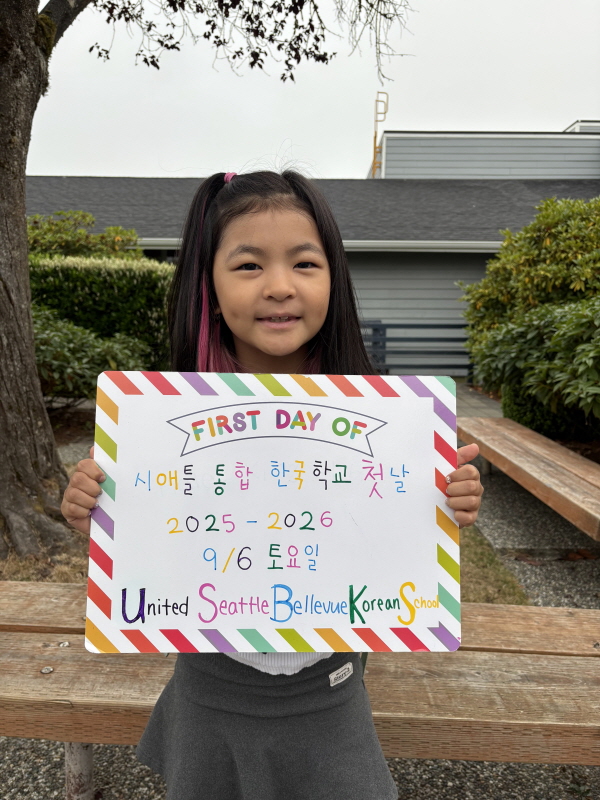 FIRST DAY OF
시애틀 통합 한국학교 첫날
2025 - 2026
9/6 토요일
United Seattle Bellevue Korean School